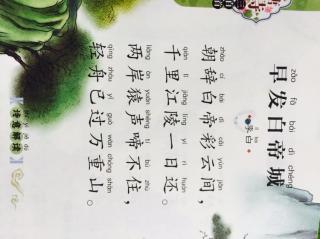 zǎo fā bái dì chéng
早发白帝城
lǐ bái
李白
zhāo cí bái dì cǎi yún jiān
朝辞白帝彩云间，
qiān lǐ jiāng líng yí rì huán
千里江陵一日还。
liǎng àn yuán shēng tí bú zhù
两岸猿声啼不住，
qīng zhōu yǐ guò wàn chóng shān
轻舟已过万重山。